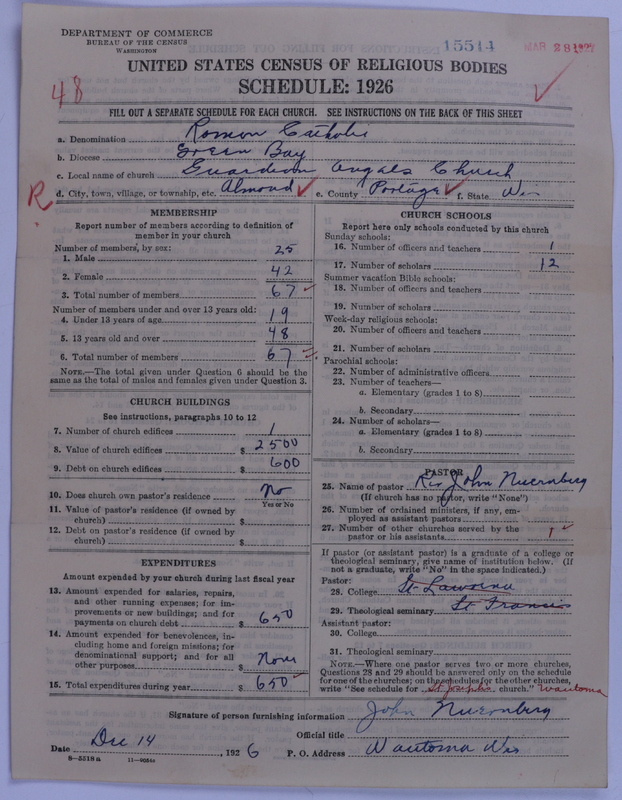 DEPARTMENT OF COMMERCE
BUREAU OF THE CENSUS
WASHINGTON
15514
MAR 28 1927
UNITED STATES CENSUS OF RELIGIOUS BODIES
SCHEDULE: 1926
48
FILL OUT A SEPARATE SCHEDULE FOR EACH CHURCH. SEE INSTRUCTIONS ON THE BACK OF THIS SHEET
a. Denomination Roman Catholic
b. Diocese Green Bay
c. Local name of church Guardian Angels Church
R
d. City, town, village, or township, etc. Almond e. County Portage f. State Wis
MEMBERSHIP
Report number of members according to definition of
member in your church
Number of members, by sex:
1. Male 25
2. Female 42
3. Total number of members 67
Number of members under and over 13 years old:
4. Under 13 years of age 19
5. 13 years old and over 48
6. Total number of members 67
NOTE.—The total given under Question 6 should be
same as the total of males and females given under Question 3.
CHURCH BUILDINGS
See instructions, paragraphs 10 to 12
7. Number of church edifices 1
8. Value of church edifices $ 2500
9. Debt on church edifices $ 600
10. Does church own pastor's residence No
Yes or No
11. Value of pastor's residence (if owned by
church) $
12. Debt on pastor's residence (if owned by
church) $
EXPENDITURES
Amount expended by your church during last fiscal year
13. Amount expended for salaries, repairs,
and other running expenses; for im-
provements or new buildings; and for
payments on church debt $ 650
14. Amount expended for benevolences, in-
cluding home and foreign missions; for
denominational support; and for all
other purposes $ None
15. Total expenditures during year $ 650
CHURCH SCHOOLS
Report here only schools conducted by this church
Sunday schools:
16. Number of officers and teachers 1
17. Number of scholars 12
Summer vacation Bible schools:
18. Number of officers and teachers
19. Number of scholars
Week-day religious schools:
20. Number of officers and teachers
21. Number of scholars
Parochial schools:
22. Number of administrative officers
23. Number of teachers—
a. Elementary (grades 1 to 8)
b. Secondary
24. Number of scholars—
a. Elementary (grades 1 to 8)
b. Secondary
PASTOR
25. Name of pastor Rev John Nuernberg
(If church has no pastor, write "None")
26. Number of ordained ministers, if any, em-
ployed as assistant pastors
27. Number of other churches served by the
pastor or his assistants 1
If pastor (or assistant pastor) is a graduate of a college or
theological seminary, give name of institution below. (If
not a graduate, write "No" in the space indicated.)
Pastor:
28. College St
29. Theological seminary St Francis
Assistant pastor:
30. College
31. Theological seminary
NOTE.—Where one pastor serves two or more churches,
Questions 28 and 29 should be answered only on the schedule
for one of the churches; on the schedules for the other churches,
write "See schedule for St Josephs church." Wautoma
Signature of person furnishing information John Nuernberg
Official title
Date Dec 14, 1926 P. O. Address Wautoma Wis
8-5518 a